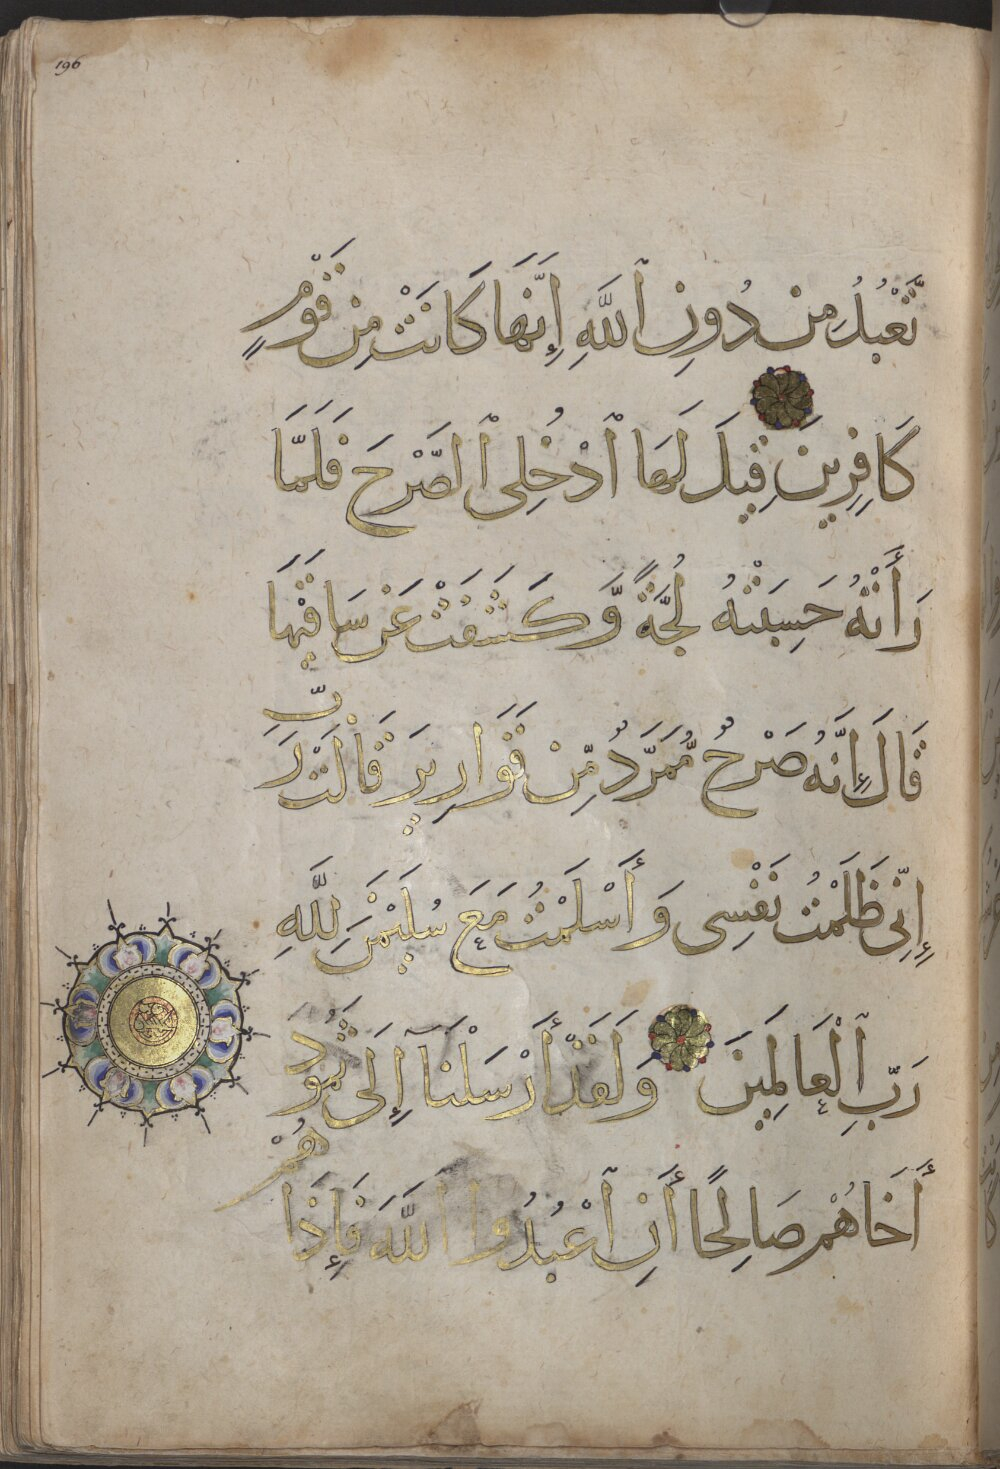 196
تَّعْبُدُ مِن دُونِ ٱللَّهِ إِنَّهَا كَانَتْ مِن قَوْمٍ
كَافِرِينَ قِيلَ لَهَا ٱدْخُلِى ٱلصَّرْحَ فَلَمَّا
رَأَتْهُ حَسِبَتْهُ لُجَّةً وَّكَشَفَتْ عَن سَاقَيْهَا
قَالَ إِنَّهُ صَرْحٌ مُّمَرَّدٌ مِّن قَوَارِيرَ قَالَتْ رَبِّ
إِنِّى ظَلَمْتُ نَفْسِى وَأَسْلَمْتُ مَعَ سُلَيْمَٰنَ لِلَّهِ
رَبِّ ٱلْعَالَمِينَ وَلَقَدْ أَرْسَلْنَآ إِلَىٰ ثَمُودَ
أَخَاهُمْ صَالِحًا أَنِ ٱعْبُدُوا ٱللَّهَ فَإِذَا هُمْ